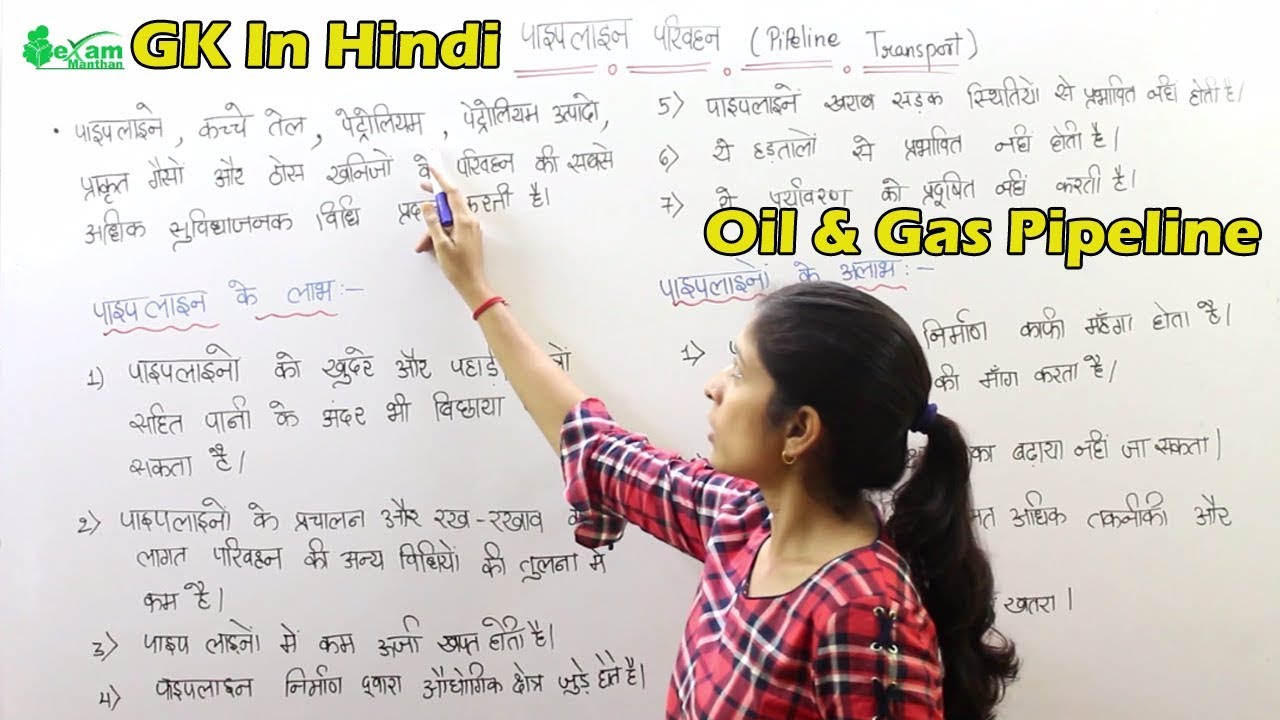 exam
Manthan
GK In Hindi
पाइपलाइन परिवहन (Pipeline Transport)
• पाइपलाइने, कच्चे तेल, पेट्रोलियम, पेट्रोलियम उत्पादो,
प्राकृत गैसों और ठोस खनिजों के परिवहन की सबसे
अधिक सुविधाजनक विधि करती है।
पाइपलाइन के लाभ :-
1) पाइपलाइनो को खुदेरे और
सहित पानी के अंदर भी बिछाया
सकता है।
2) पाइपलाइनों के प्रचालन और रख-रखाव
लागत परिवहन की अन्य विधियों की तुलना में
कम है।
3) पाइप लाइनों में कम ऊर्जा खपत होती है।
4) पाइपलाइन निर्माण द्वारा औधोगिक क्षेत्र जुड़े होते है।
5) पाइपलाइनें खराब सड़क स्थितियों से प्रभावित नहीं होती है।
6) ये हड़तालों से प्रभावित नहीं होती है।
7) ये पर्यावरण को प्रदूषित नहीं करती है।
Oil & Gas Pipeline
पाइपलाइनों के अलाभ :-
1) निर्माण काफी महँगा होता है।
की माँग करता है।
बढ़ाया नहीं जा सकता।
अधिक तकनीकी और
खतरा।